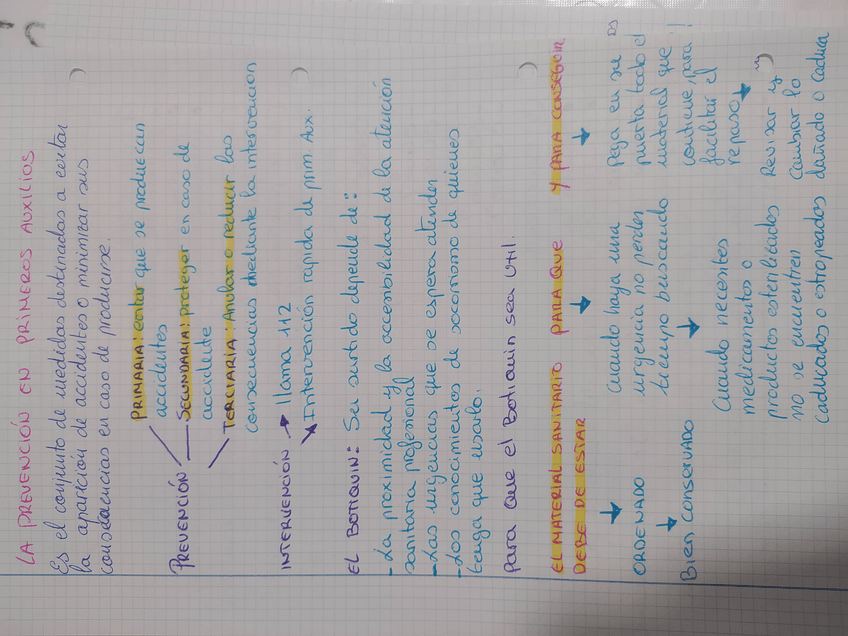 LA PREVENCIÓN EN PRIMEROS AUXILIOS
Es el conjunto de medidas destinadas a evitar
la aparición de accidentes o minimizar sus
consecuencias en caso de producirse.
PRIMARIA: evitar que se produzcan
accidentes
PREVENCIÓN
SECUNDARIA: proteger en caso de
accidente
TERCIARIA: Anular o reducir las
consecuencias mediante la intervencion
INTERVENCIÓN
llama 112
Intervención rapida de prim Aux.
EL BOTIQUIN: Su surtido depende de:
-La proximidad y la accesibilidad de la atención
sanitaria profesional
-Las urgencias que se espera atender
-Los conocimientos de socorrismo de quienes
tenga que usarlo.
Para que el Botiquin sea util.
EL MATERIAL SANITARIO
DEBE DE ESTAR
ORDENADO
Bien conservado
PARA QUE
Cuando haya una
urgencia no perder
tiempo buscando
Cuando necesites
medicamentos o
productos esterilizados
no se encuentren
caducados o estropeados
Y PARA CONSEGUIR
Pega en su
puerta todo el
material que
contiene, para
facilitar el
repaso
Revisar y
Cambiar lo
dañado o caduca